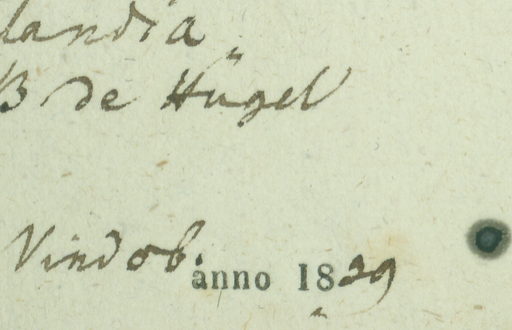 landia
B de Hügel
Vindob.
anno 1839